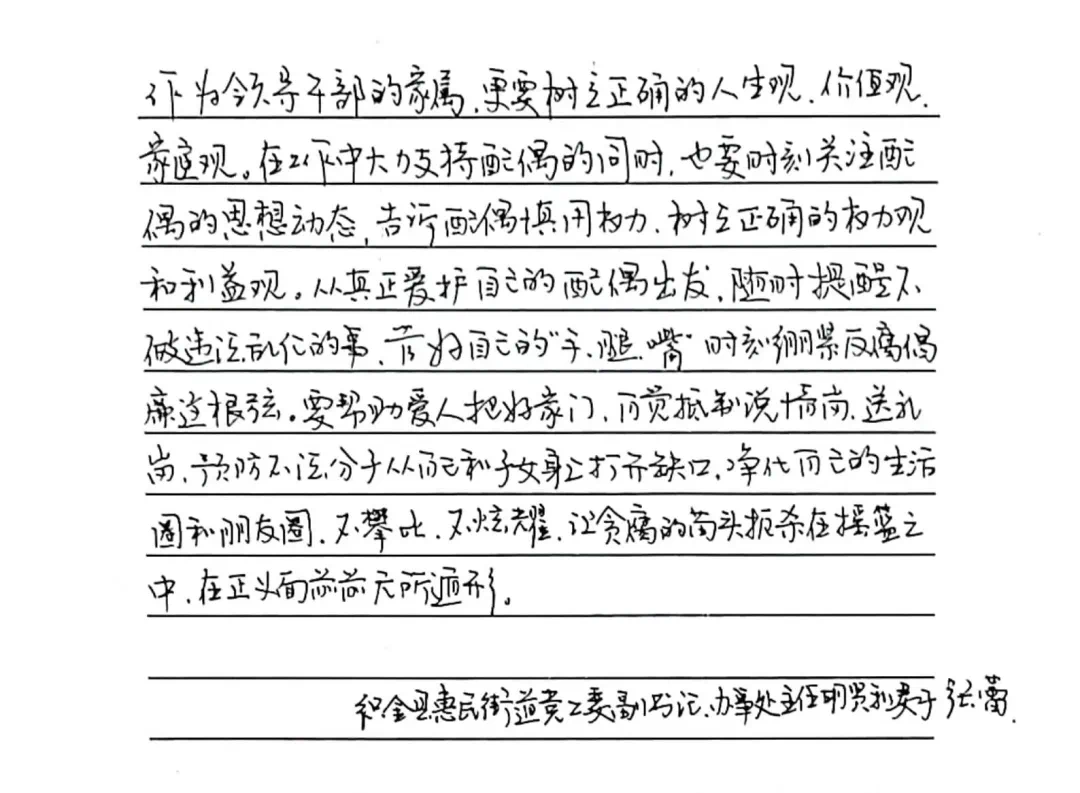 作为领导干部的家属,更要树立正确的人生观、价值观、
家庭观。在工作中大力支持配偶的同时,也要时刻关注配
偶的思想动态,告诉配偶慎用权力、树立正确的权力观
和利益观。从真正爱护自己的配偶出发,随时提醒不
做违法乱纪的事,管好自己的"手、腿、嘴"时刻绷紧反腐倡
廉这根弦。要帮助爱人把好家门,自觉抵制说情岗、送礼
岗,预防不法分子从自己和子女身上打开缺口,净化自己的生活
圈和朋友圈,不攀比,不炫耀,让贪腐的苗头扼杀在摇篮之
中,在正义面前无所遁形。
织金县惠民街道党工委副书记、办事处主任明贤利妻子 张蕾